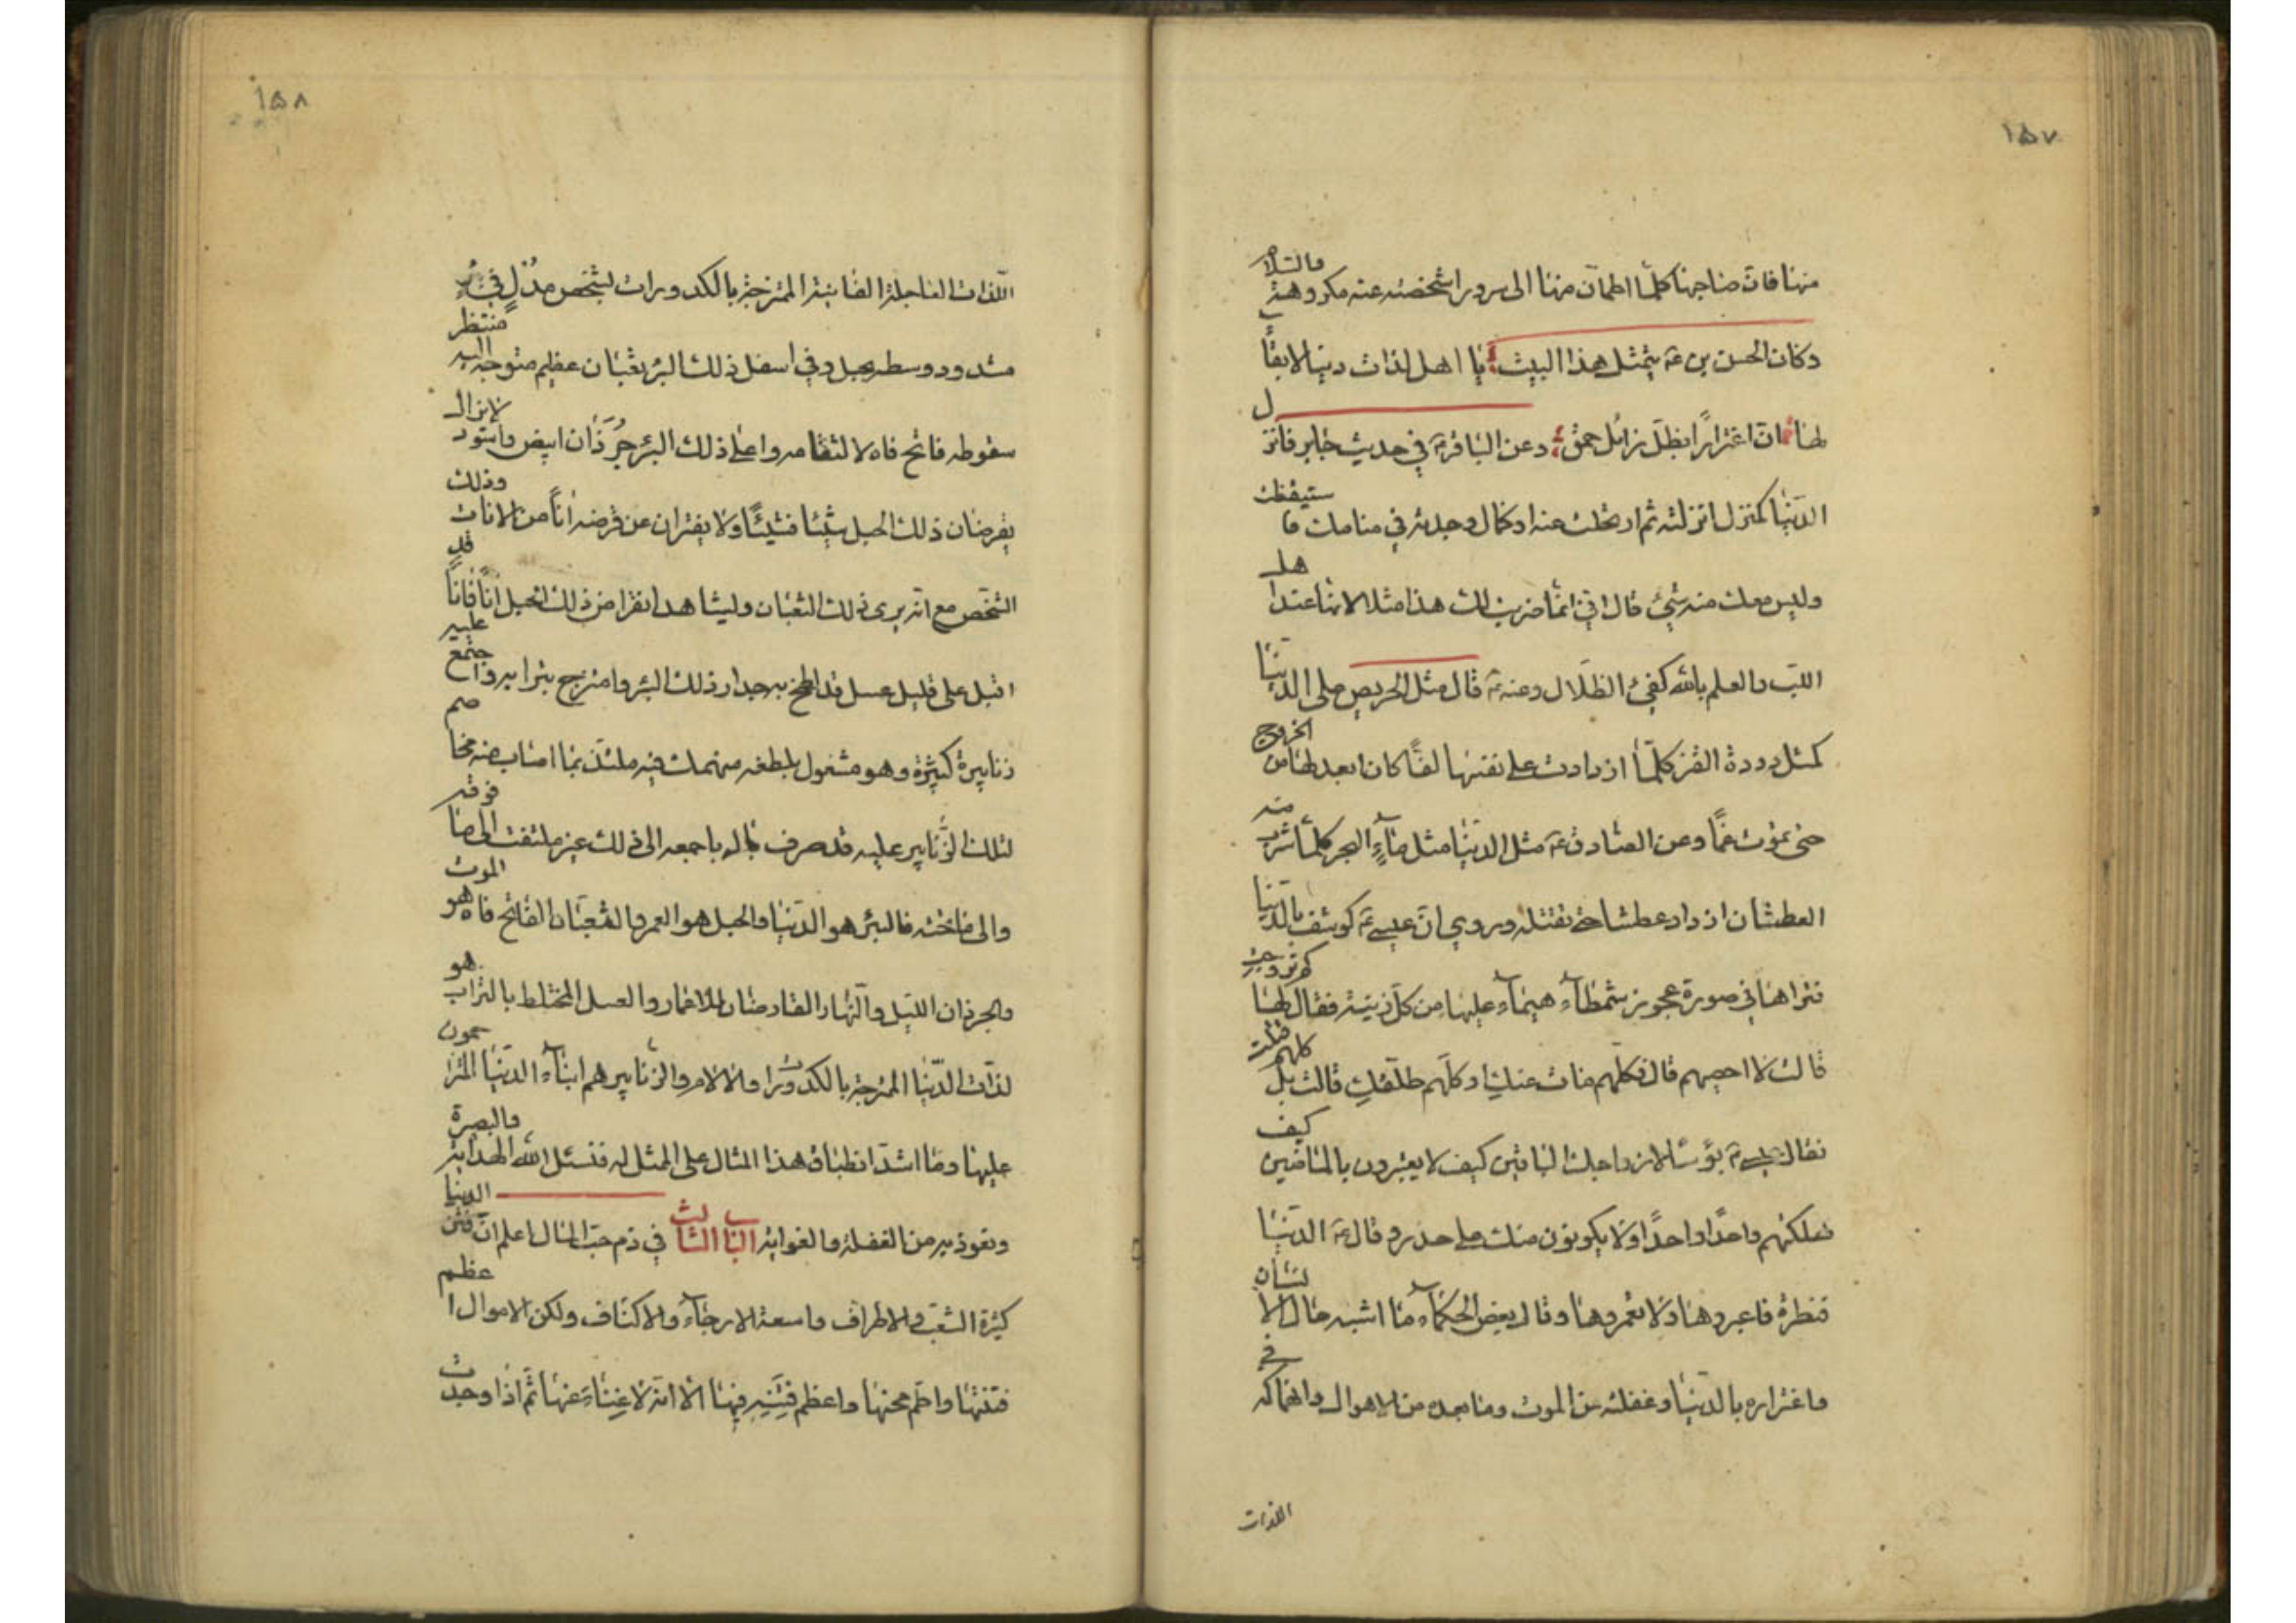 ١٥٧
منها فان صاحبها كلما اطمان منها الى سرور اشخصته عنه مكروهة والسلام
وكان الحسن بن ع يتمثل هذا البيت يا اهل لذات دنيا لا بقاء
لها ان اغترارا بظل زائل حمق وعن الباقر ع في حديث جابر فانزل
الدنيا كمنزل انزلته ثم ارتحلت عنه او كمال وجدته في منامك فاستيقظت
وليس معك منه شيء قال اني انما ضربت لك هذا مثلا لانها عند اهل
اللب والعلم بالله كفيء الظلال وعنه ع قال مثل الحريص على الدنيا
كمثل دودة القز كلما ازدادت على نفسها لفا كان ابعد لها من الخروج
حتى تموت غما وعن الصادق ع مثل الدنيا مثل ماء البحر كلما شرب منه
العطشان ازداد عطشا حتى تقتله وروي ان عيسى ع كوشف بالدنيا
فتراها في صورة عجوز شمطاء هيماء عليها من كل زينة فقال لها كم تزوجت
قالت لا احصيهم قال فكلهم مات عنك او كلهم طلقك قالت بل كلهم قتلت
فقال عيسى ع بؤسا لازواجك الباقين كيف لا يعتبرون بالماضين كيف
تهلكنهم واحدا واحدا ولا يكونون منك على حذر وقال ع الدنيا
قنطرة فاعبروها ولا تعمروها وقال بعض الحكماء ما اشبه حال الانسان
واغتراره بالدنيا وغفلته عن الموت وما بعده من الاهوال وانهماكه في
اللذات
١٥٨
اللذات العاجلة الفانية الممتزجة بالكدورات لشخص مدل في بئر
مشدود وسطه بحبل وفي اسفل ذلك البئر ثعبان عظيم متوجه اليه منتظر
سقوطه فاتح فاه لالتقامه واعلى ذلك البئر جرذان ابيض واسود لا يزال
يقرضان ذلك الحبل شيئا فشيئا ولا يفتران عن قرضه انا من الانات وذلك
الشخص مع انه يرى ذلك الثعبان ويشاهد انقراض ذلك الحبل انا فانا قد
اقبل على قليل عسل قد لطخ به جدار ذلك البئر وامتزج بترابه واجتمع عليه
زنابير كثيرة وهو مشغول بلطعه منهمك فيه ملتذ بما اصاب منه مخاصم
لتلك الزنابير عليه قد صرف باله باجمعه الى ذلك غير ملتفت الى ما فوقه
والى ما تحته فالبئر هو الدنيا والحبل هو العمر والثعبان الفاتح فاه هو الموت
والجرذان الليل والنهار القارضان للاعمار والعسل المختلط بالتراب هو
لذات الدنيا الممتزجة بالكدورات والالام والزنابير هم ابناء الدنيا المتزاحمون
عليها وما اشد انطباق هذا المثال على الممثل له فنسئل الله الهداية والبصيرة
ونعوذ به من الغفلة والغواية الباب الثالث في ذم حب المال اعلم ان فتن الدنيا
كثيرة الشعب والاطراف واسعة الارجاء والاكناف ولكن الاموال اعظم
فتنها واطم محنها واعظم فتنة فيها الا انه لا غناء عنها ثم اذا وجدت